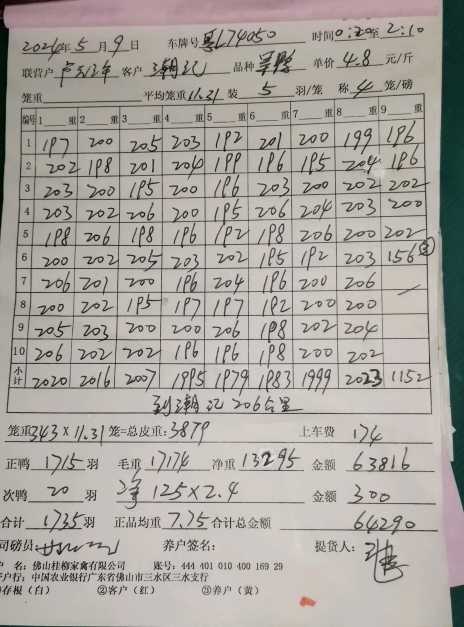 2024年5月9日 车牌号 粤L74050 时间0:20至2:10
联营户 客户 品种 单价 4.8 元/斤
笼重 平均笼重11.31 装 5 羽/笼 称 4 笼/磅
编号 1 重 2 重 3 重 4 重 5 重 6 重 7 重 8 重 9 重
1 197 200 205 203 192 201 200 199 196
2 202 198 201 204 199 196 195 204 196
3 203 200 195 200 196 203 200 202 202
4 203 202 206 200 195 206 204 203 200
5 198 206 198 196 192 198 206 200 202
6 200 202 205 203 202 195 192 203 156
7 206 201 200 196 204 196 200 206
8 200 202 195 197 197 192 200 200
9 205 203 200 200 206 198 202 204
10 206 202 202 196 196 198 200 202
小计 2020 2016 2007 1995 1979 1983 1999 2023 1152
到潮记206公里
笼重343×11.31笼=总皮重:3879 上车费 174
正鸭 1715 羽 毛重 17174 净重 13295 金额 63816
次鸭 20 羽 净 125×2.4 金额 300
合计 1735 羽 正品均重 7.75 合计总金额 64290
司磅员: 养户签名: 提货人:
户 名:佛山桂柳家禽有限公司 账号:444 401 010 400 169 29
户行:中国农业银行广东省佛山市三水区三水支行
①存根(白) ②客户(红) ③养户(黄)